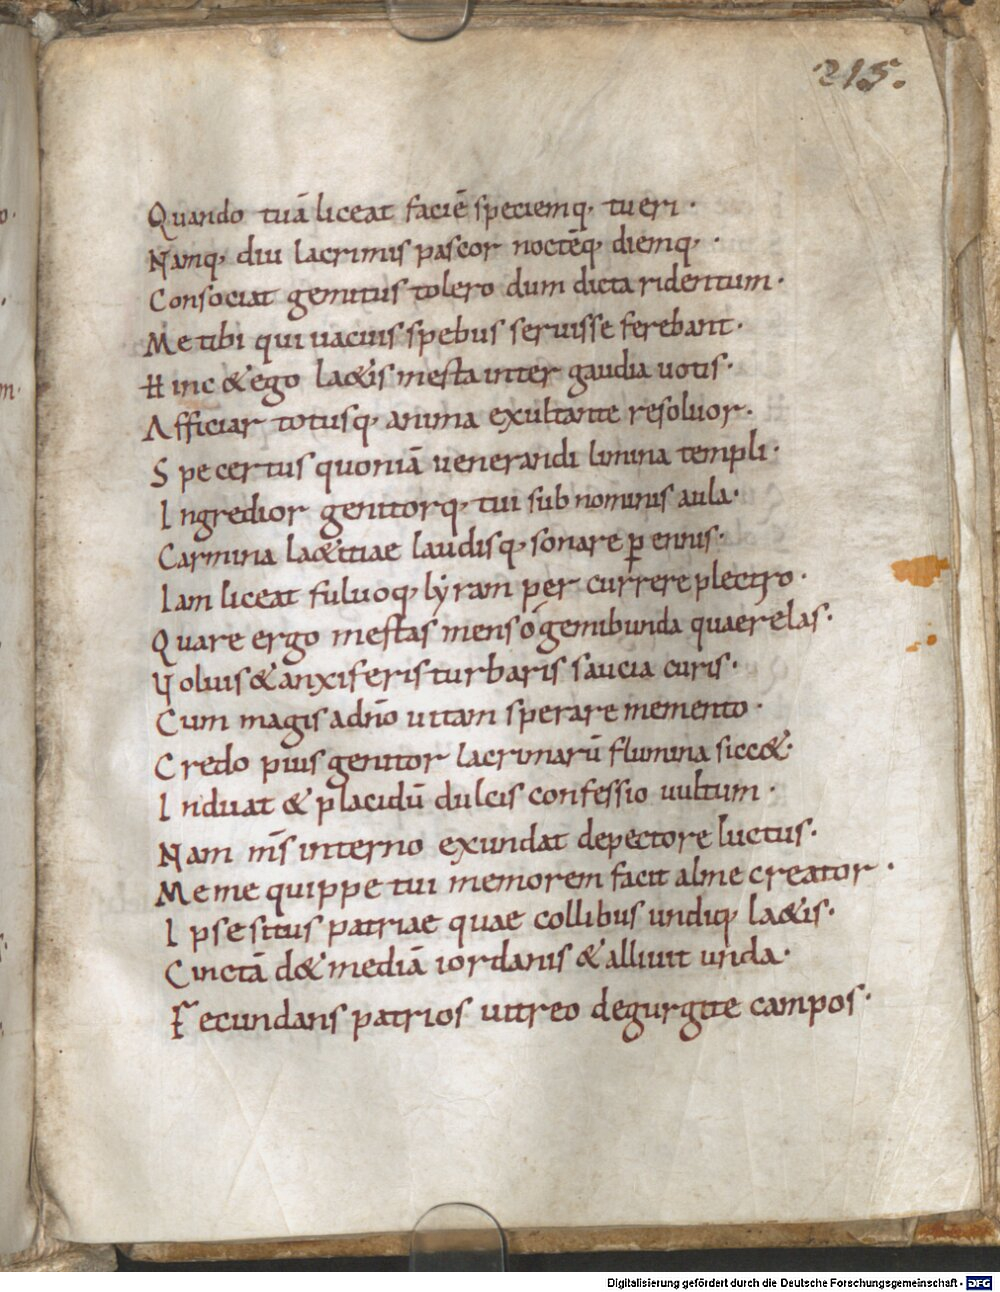 215.
Quando tuā liceat faciē speciemq; tueri.
Namq; diu lacrimis pascor noctēq; diemq;.
Consociat gemitus tolero dum dicta ridentum.
Me tibi qui uacuis spebus seruisse ferebant.
Hinc & ego la&is mesta inter gaudia uotis.
Afficiar totusq; anima exultante resoluor.
Spe certus quoniā uenerandi limina templi.
Ingredior genitorq; tui sub nominis aula.
Carmina la&itiae laudisq; sonare p̲ennis.
Iam liceat fuluoq; lyram per currere plectro.
Quare ergo mestas mens ó gemibunda quaerelas.
Voluis & anxiferis turbaris saucia curis.
Cum magis ad dn̄o uitam sperare memento.
Credo pius genitor lacrimarū flumina sicc&.
Induat & placidū dulcis confessio uultum.
Nam m̄s interno exundat depectore luctus.
Me me quippe tui memorem facit alme creator.
Ipse situs patriae quae collibus undiq; la&is.
Cinctā d& mediā iordanis & alluit unda.
Fecundans patrios uitreo degurgite campos.
Digitalisierung gefördert durch die Deutsche Forschungsgemeinschaft - DFG